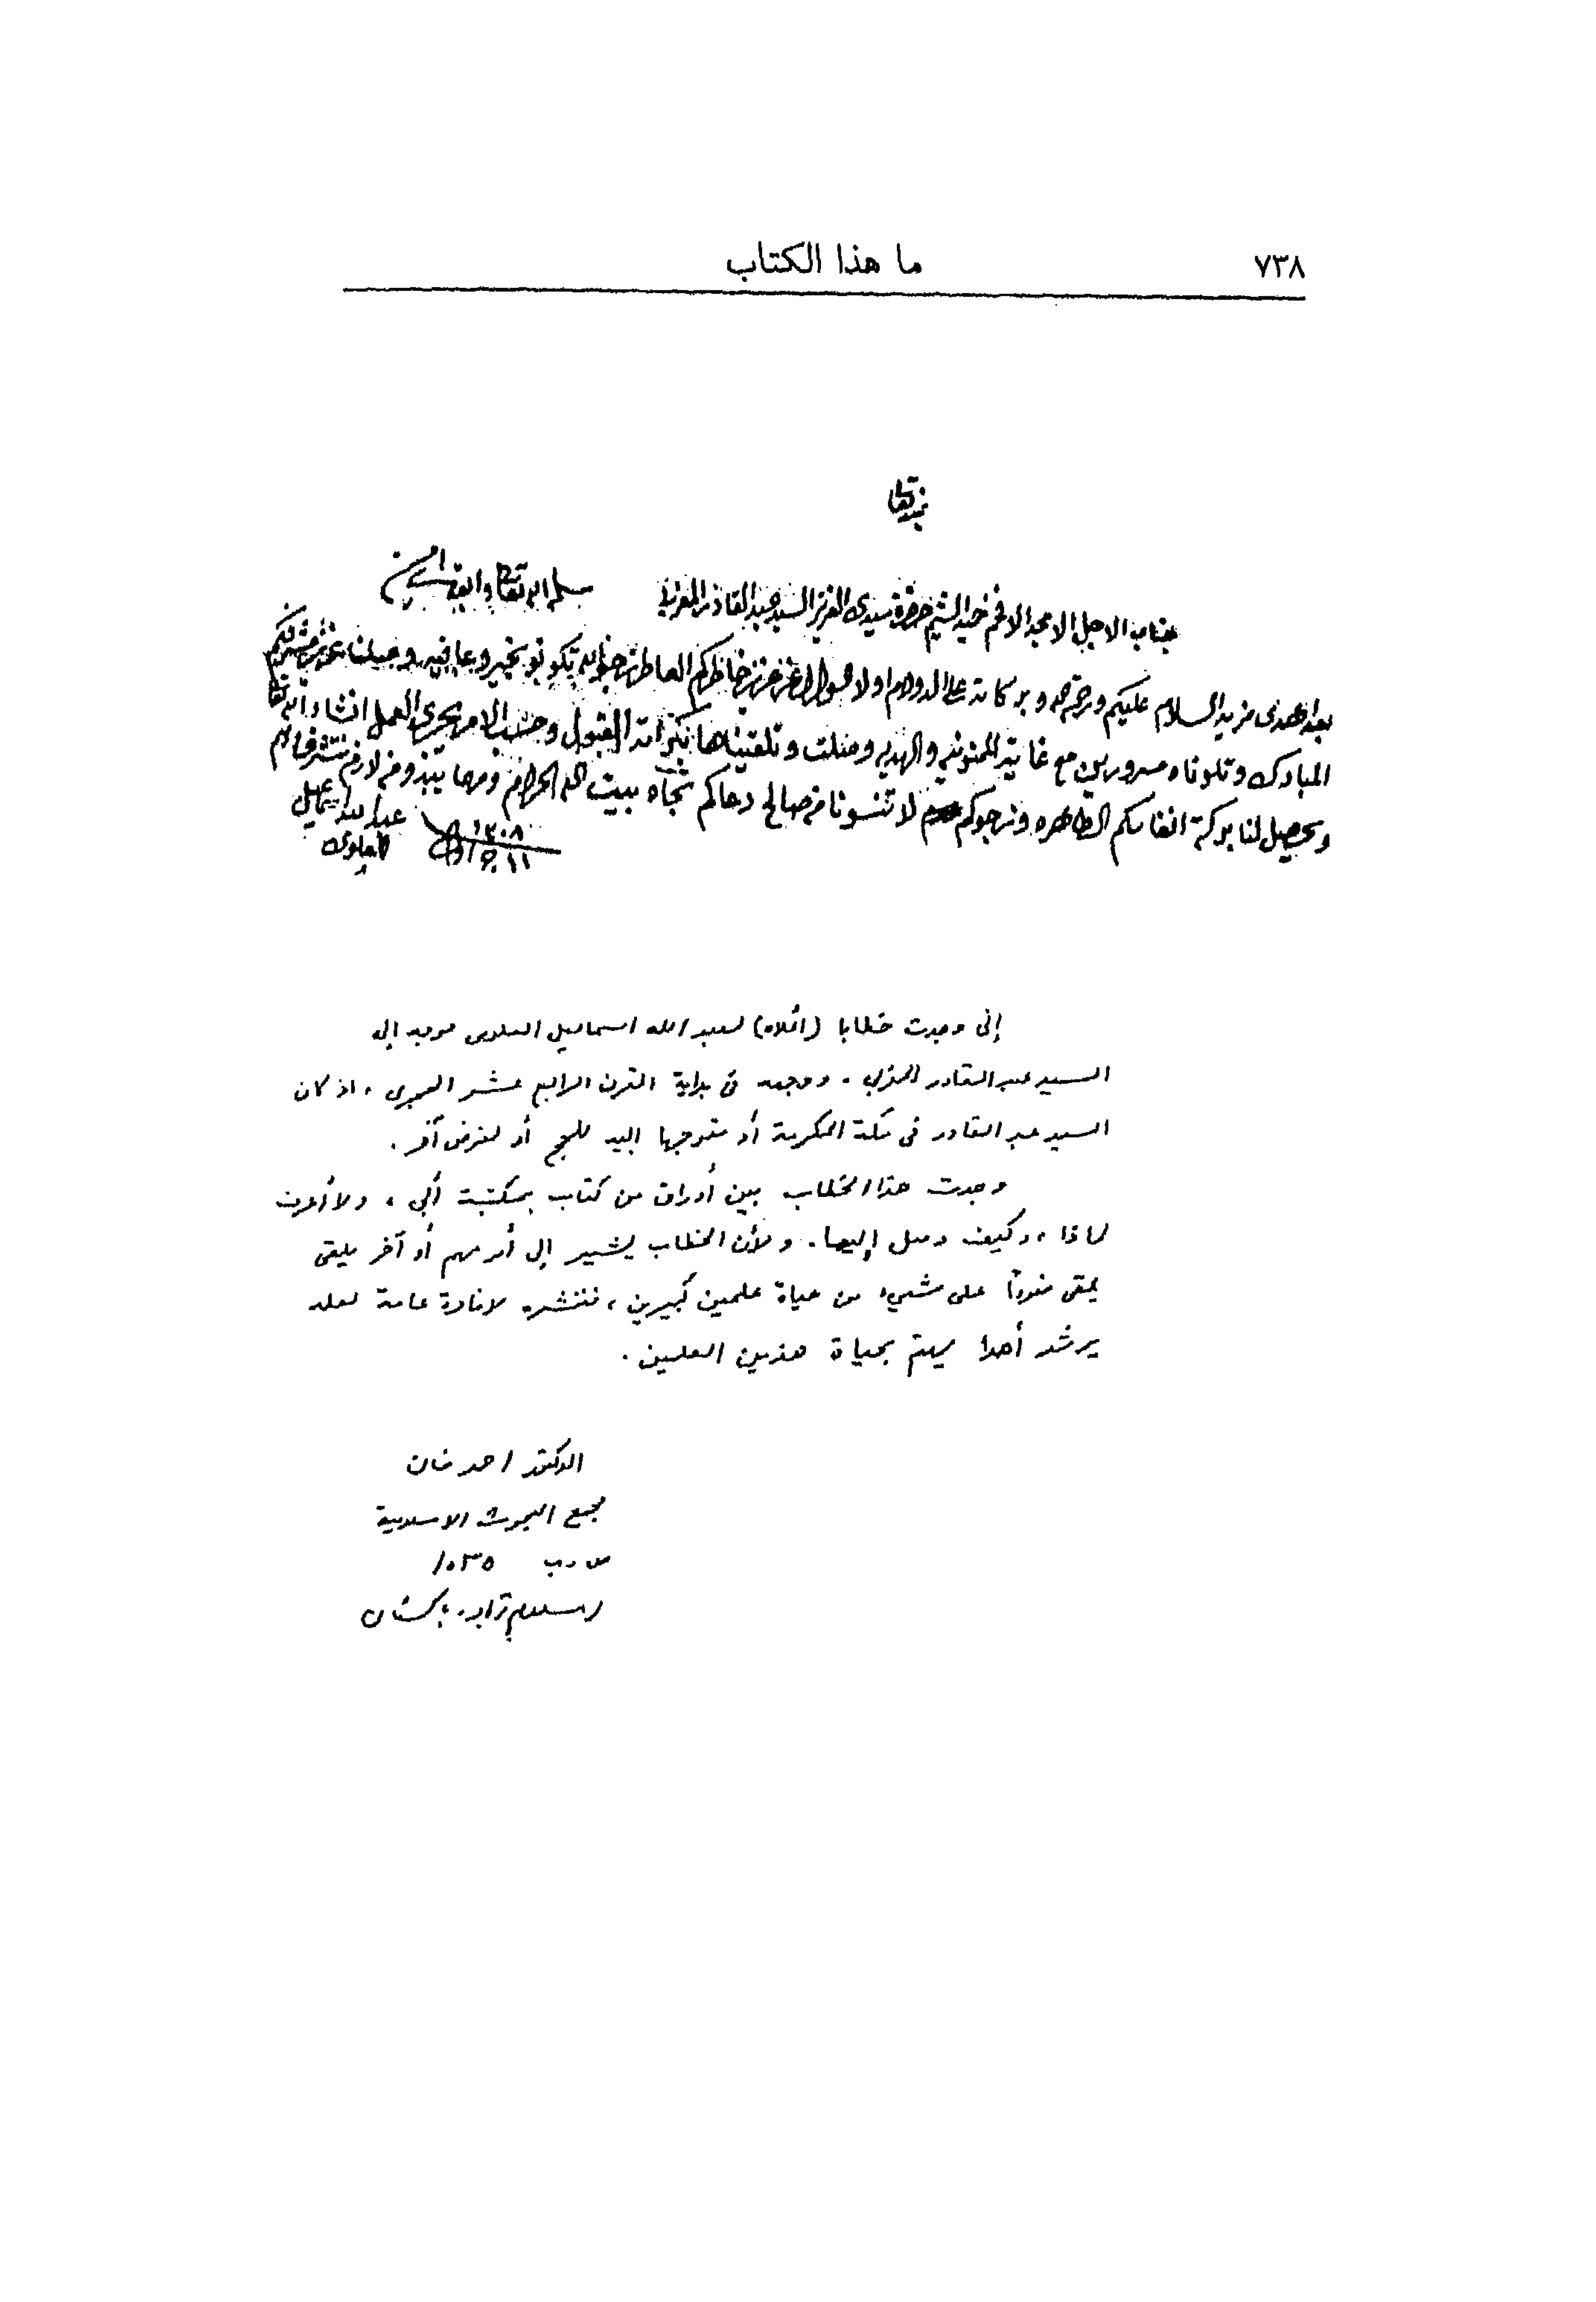 ٧٣٨ ما هذا الكتاب
جناب الاجل الامجد الافخم حميد الشيم حضرة سيدى العزيز السيد عبد القادر المغربي سلمه الله تعالى وابقاه امين
بعد اهدى مزيد السلام عليكم ورحمة الله وبركاته على الدوام اولا السوال عن عزيز خاطركم العاطر نرجو الله تكونو بخير وعافيه وصلنا عزيز مشرفكم
المبارك وتلوناه مسرورين مع غاية الممنونيه والهديه وصلت وتلقيناها بكرامة القبول وحسب الامر يجرى العمل انشاء الله تعا
ويحصل لنا بركة انفاسكم الطاهره ونرجوكم لا تنسونا من صالح دعاكم تجاه بيت الله الحرام ومهما يبدو من لازم نتشرف به
عبد الله اسماعيل
العلوى
١٣٠٨
إنى وجدت خطابا (أعلاه) لعبد الله اسماعيل العلوى موجه إلى
السيد عبد القادر المغربي . ووجهه فى بداية القرن الرابع عشر الهجرى ، اذ كان
السيد عبد القادر فى مكة المكرمة أو متوجها إليه للحج أو لغرض آخر .
وجدت هذا الخطاب بين أوراق من كتاب بمكتبة أبى ، ولا أعرف
لماذا ، وكيف وصل إليها . ولأن الخطاب يشير إلى أمر مهم أو آخر يلقى
يلقى ضوءًا على شىء من حياة علمين كبيرين ، فننشره لإفادة عامة لعله
يرشد أحدا يهتم بحياة هذين العلمين .
الدكتور احمد خان
مجمع البحوث الاسلامية
ص . ب ١٠٣٥
اسلام آباد . باكستان